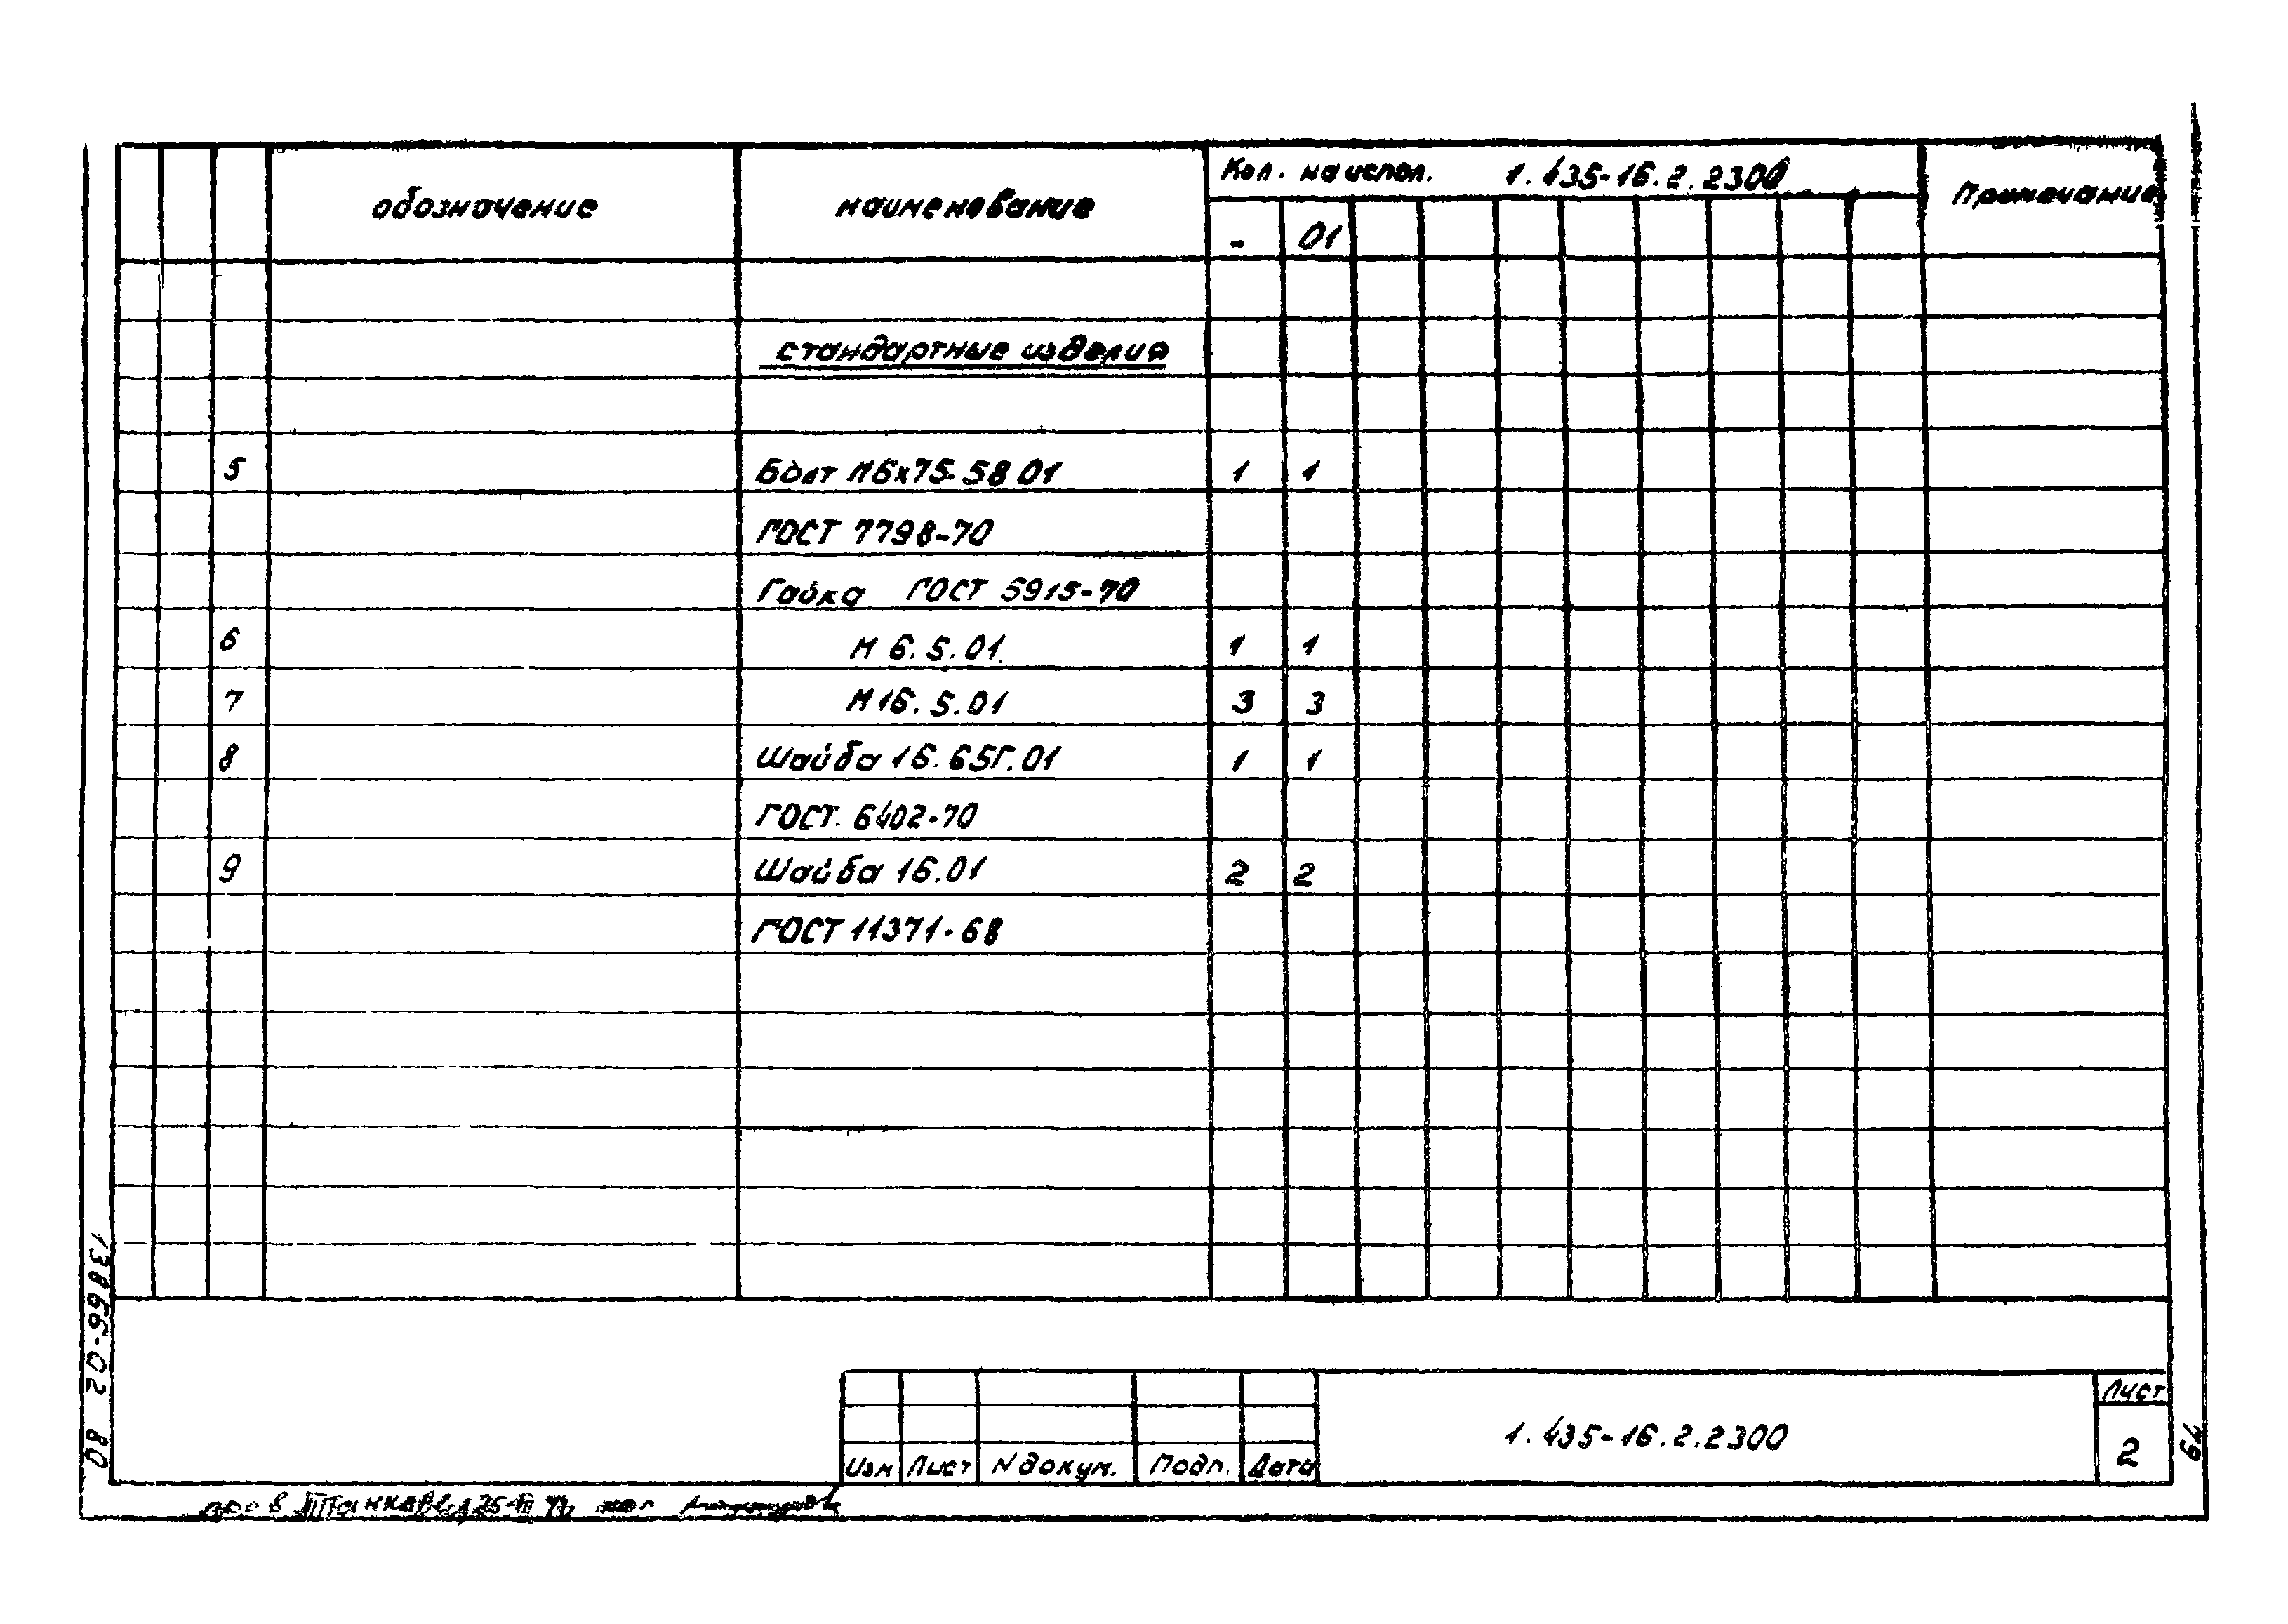 обозначение наименование Кол. на испол. 1.435-16.2.2300 Примечание
- 01
стандартные изделия
5 Болт М6х75.58 01 1 1
ГОСТ 7798-70
Гайка ГОСТ 5915-70
6 М 6.5.01 1 1
7 М16.5.01 3 3
8 Шайба 16.65Г.01 1 1
ГОСТ 6402-70
9 Шайба 16.01 2 2
ГОСТ 11371-68
13866-02 80
Изм Лист N докум. Подп. Дата
1.435-16.2.2300
Лист
2
79